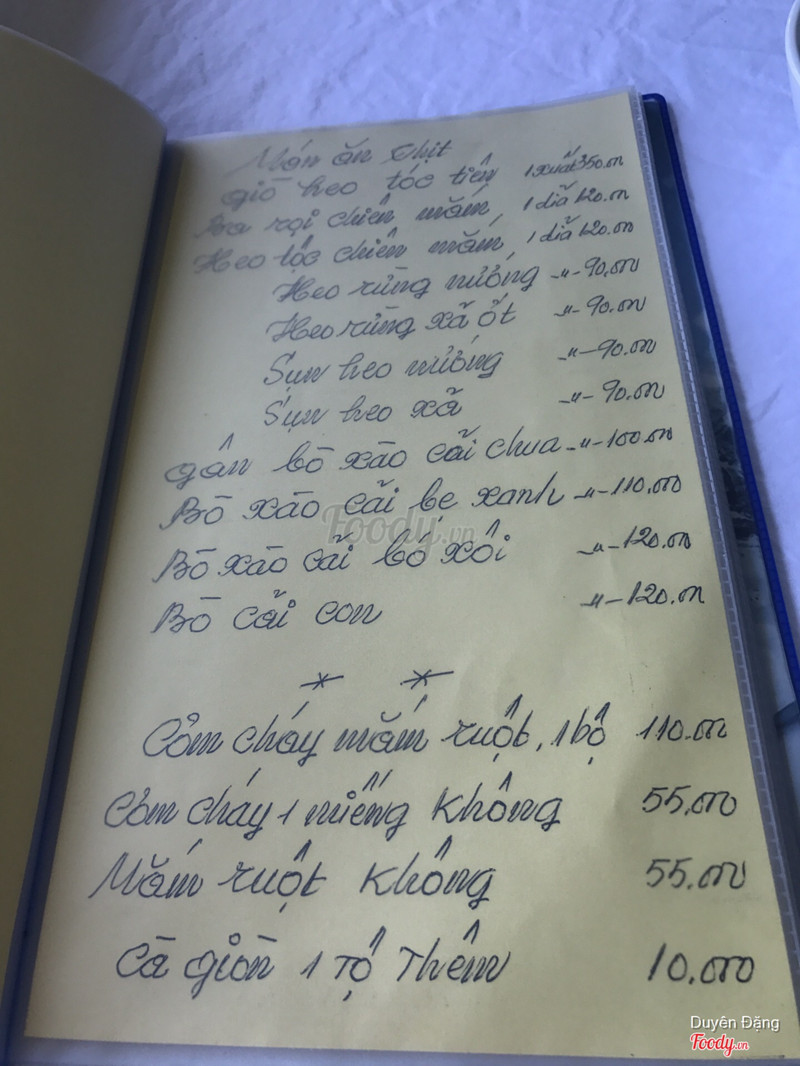 Món ăn thịt
giò heo tóc tiên 1 xuất 350.000
Ba rọi chiên mắm, 1 dĩa 120.000
Heo tộc chiên mắm, 1 dĩa 120.000
Heo rừng nướng -"- 90.000
Heo rừng xã ớt -"- 90.000
Sụn heo nướng -"- 90.000
Sụn heo xã -"- 90.000
gân bò xào cãi chua -"- 100.000
Bò xào cãi bẹ xanh -"- 110.000
Bò xào cãi bó xôi -"- 120.000
Bò cãi con -"- 120.000
* *
Cơm cháy mắm ruột, 1 bộ 110.000
Cơm cháy 1 miếng không 55.000
Mắm ruột không 55.000
Cà giòn 1 Tộ Thêm 10.000
Foody.vn
Duyên Đặng
Foody.vn